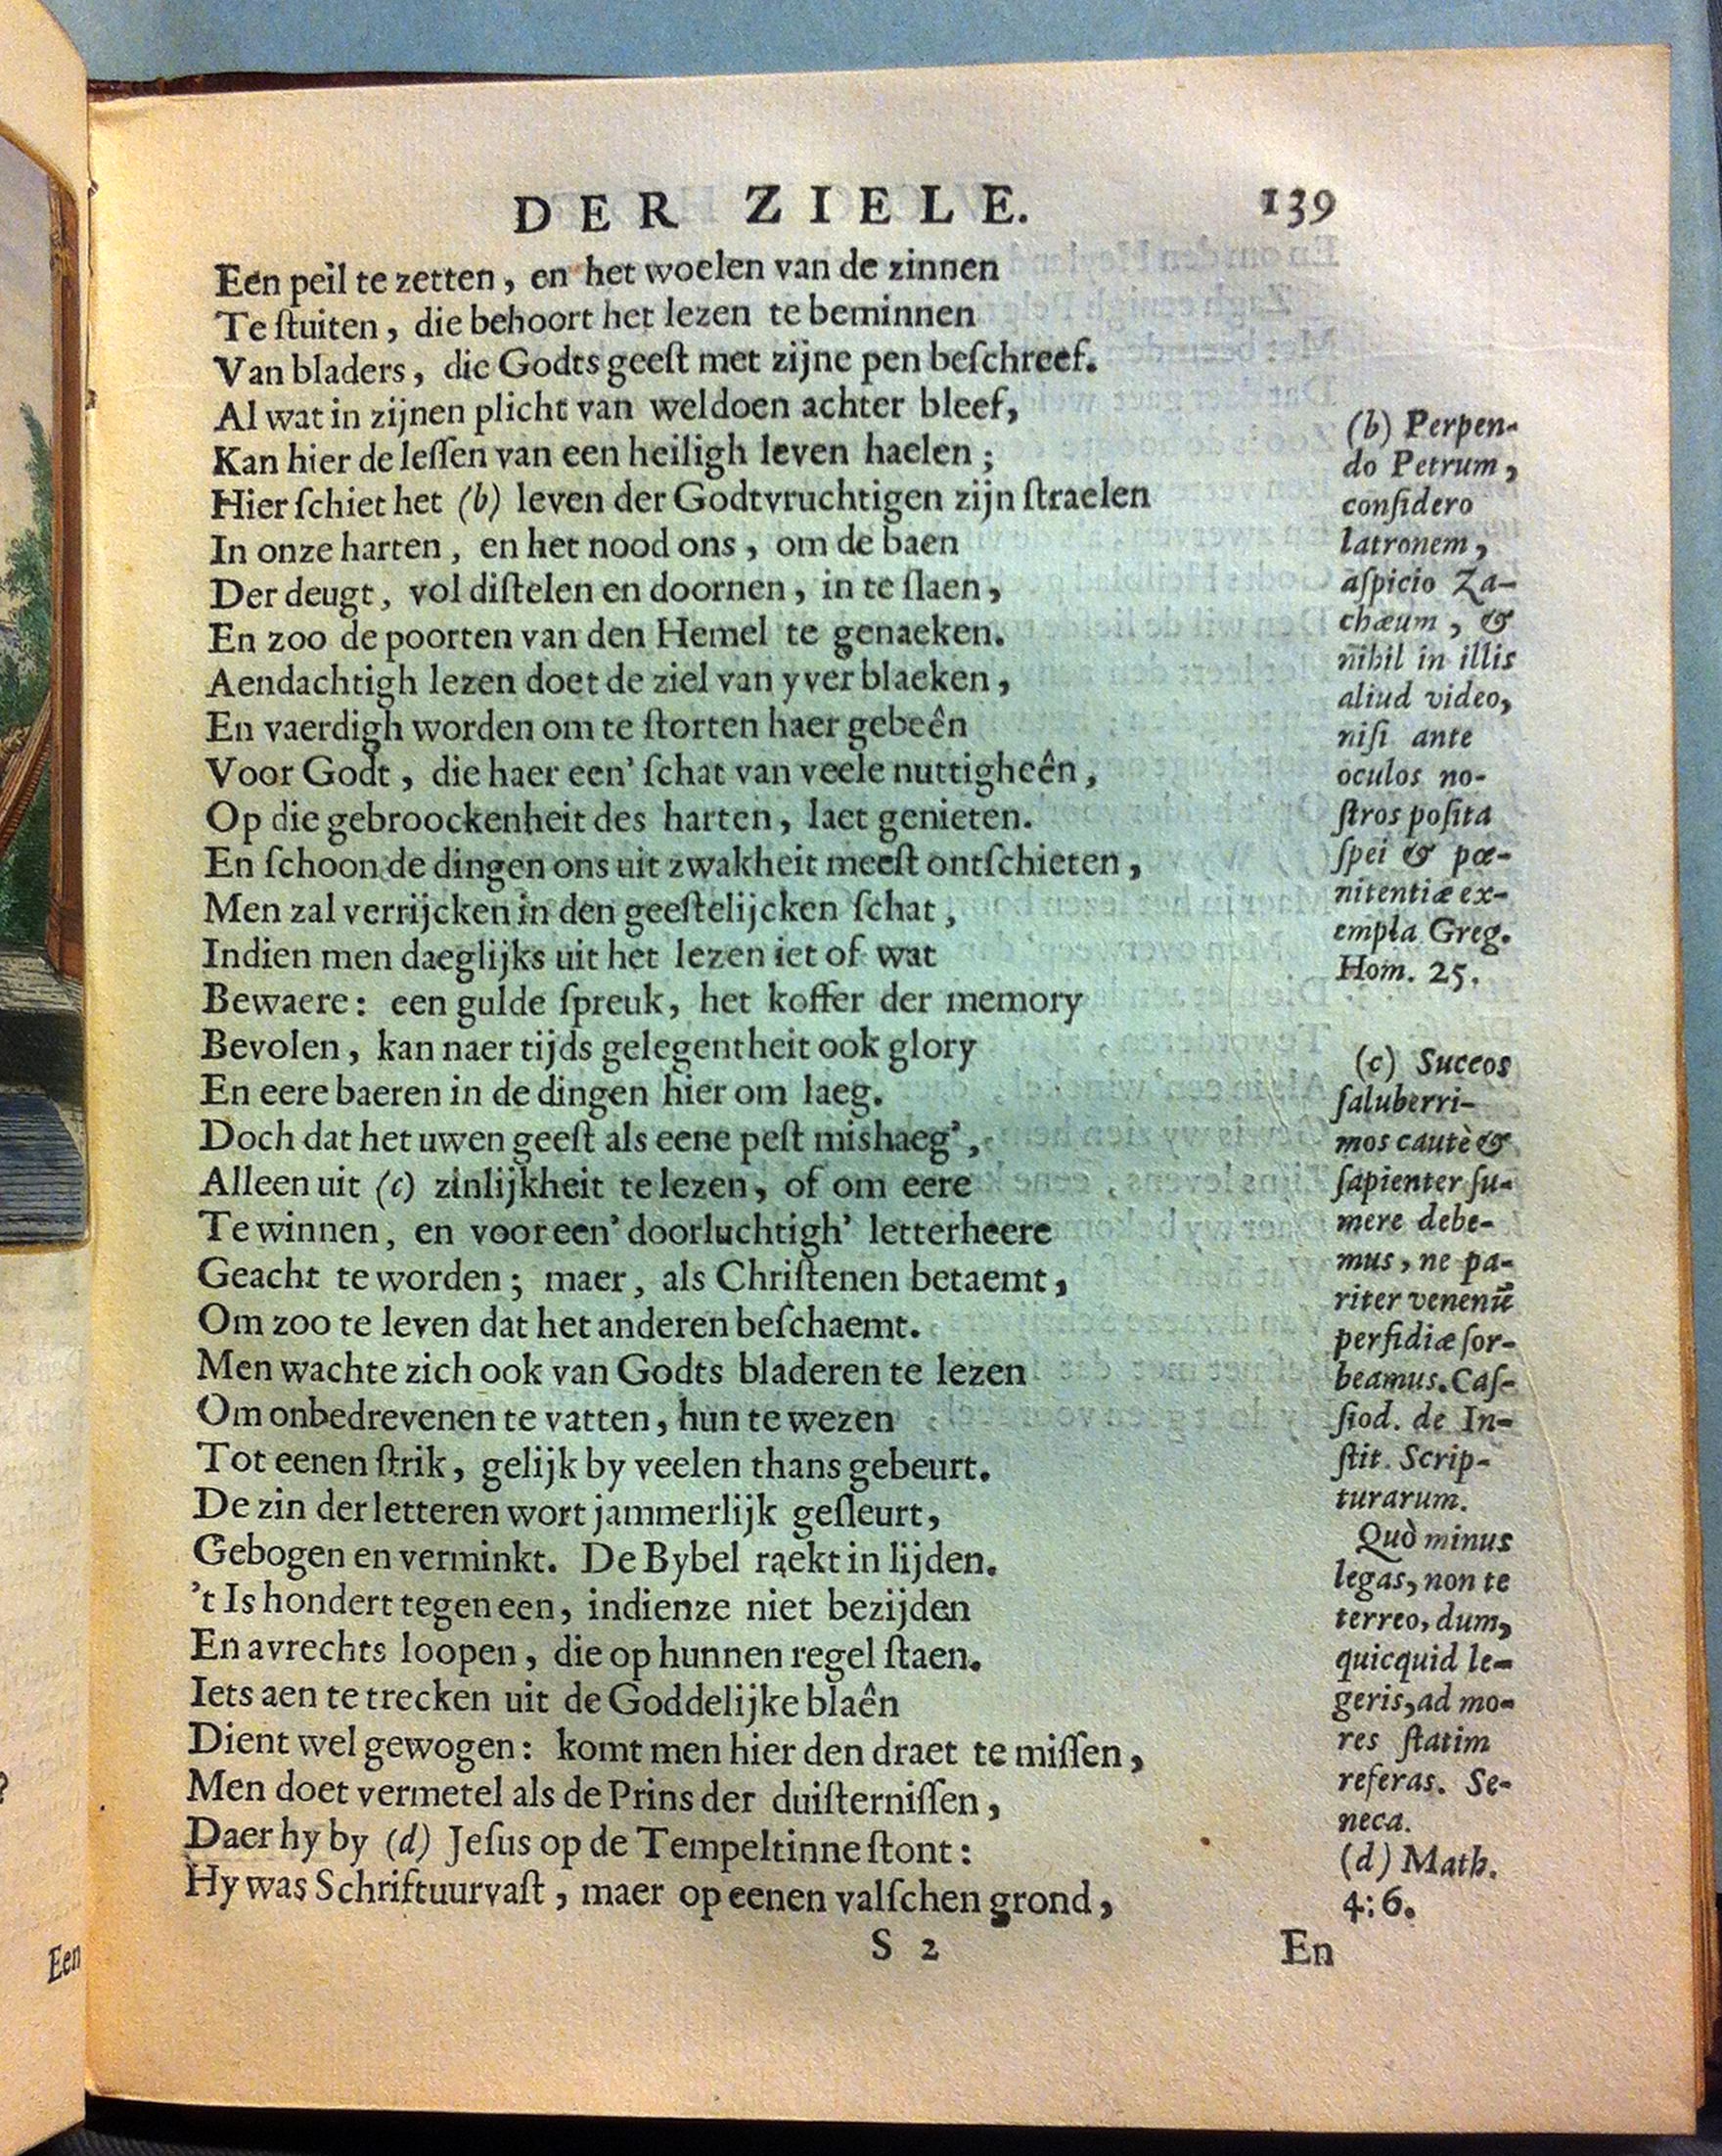 DER ZIELE. 139
Een peil te zetten, en het woelen van de zinnen
Te ſtuiten, die behoort het lezen te beminnen
Van bladers, die Godts geeſt met zijne pen beſchreef.
Al wat in zijnen plicht van weldoen achter bleef,
Kan hier de leſſen van een heiligh leven haelen;
Hier ſchiet het (b) leven der Godtvruchtigen zijn ſtraelen
In onze harten, en het nood ons, om de baen
Der deugt, vol diſtelen en doornen, in te ſlaen,
En zoo de poorten van den Hemel te genaeken.
Aendachtigh lezen doet de ziel van yver blaeken,
En vaerdigh worden om te ſtorten haer gebeên
Voor Godt, die haer een' ſchat van veele nuttigheên,
Op die gebroockenheit des harten, laet genieten.
En ſchoon de dingen ons uit zwakheit meeſt ontſchieten,
Men zal verrijcken in den geeſtelijcken ſchat,
Indien men daeglijks uit het lezen iet of wat
Bewaere: een gulde ſpreuk, het koffer der memory
Bevolen, kan naer tijds gelegentheit ook glory
En eere baeren in de dingen hier om laeg.
Doch dat het uwen geeſt als eene peſt mishaeg',
Alleen uit (c) zinlijkheit te lezen, of om eere
Te winnen, en voor een' doorluchtigh' letterheere
Geacht te worden; maer, als Chriſtenen betaemt,
Om zoo te leven dat het anderen beſchaemt.
Men wachte zich ook van Godts bladeren te lezen
Om onbedrevenen te vatten, hun te wezen
Tot eenen ſtrik, gelijk by veelen thans gebeurt.
De zin der letteren wort jammerlijk geſleurt,
Gebogen en verminkt. De Bybel raekt in lijden.
't Is hondert tegen een, indienze niet bezijden
En avrechts loopen, die op hunnen regel ſtaen.
Iets aen te trecken uit de Goddelijke blaên
Dient wel gewogen: komt men hier den draet te miſſen,
Men doet vermetel als de Prins der duiſterniſſen,
Daer hy by (d) Jeſus op de Tempeltinne ſtont:
Hy was Schriftuurvaſt, maer op eenen valſchen grond,
S 2 En
(b) Perpen-
do Petrum,
conſidero
latronem,
aſpicio Za-
chæum, &
nihil in illis
aliud video,
niſi ante
oculos no-
ſtros poſita
ſpei & pœ-
nitentiæ ex-
empla Greg.
Hom. 25.
(c) Succos
ſaluberri-
mos cautè &
ſapienter ſu-
mere debe-
mus, ne pa-
riter venenū
perfidiæ ſor-
beamus. Caſ-
ſiod. de In-
ſtit. Scrip-
turarum.
Quò minus
legas, non te
terreo, dum,
quicquid le-
geris, ad mo-
res ſtatim
referas. Se-
neca.
(d) Math.
4:6.
Een
?